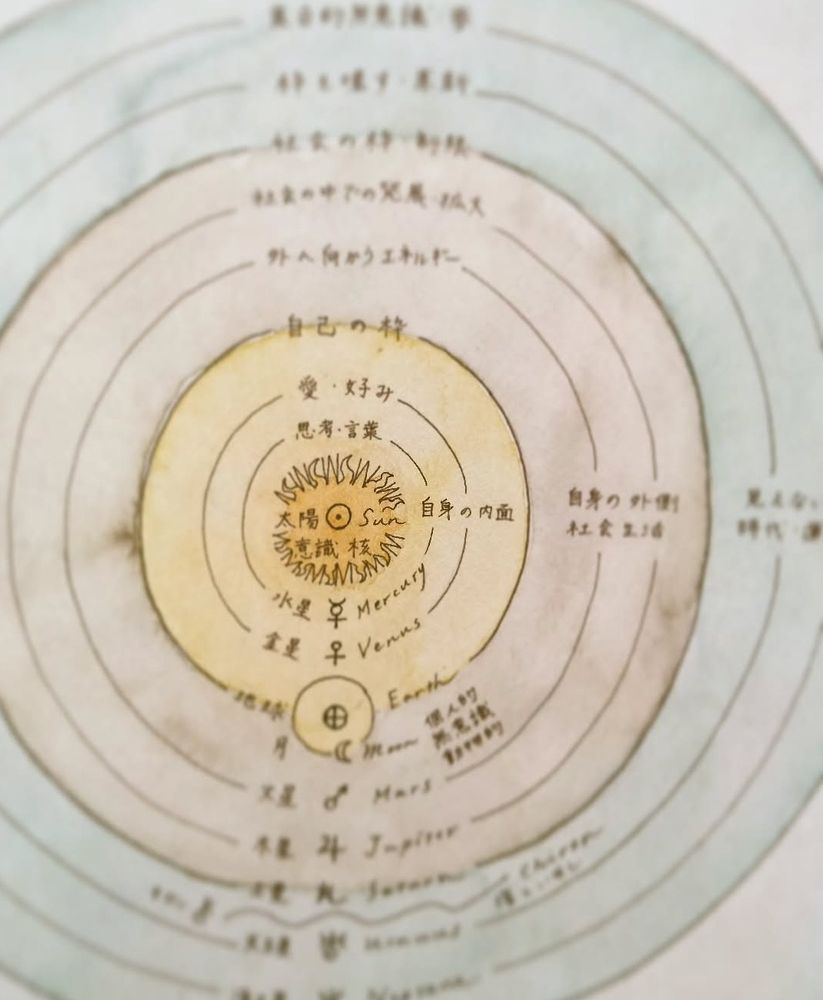 集合的無意識・夢
枠を壊す・革新
社会の枠・制限
社会の中での発展・拡大
外へ向かうエネルギー
自己の枠
愛・好み
思考・言葉
太陽 ☉ Sun
意識 核
自身の内面
自身の外側
社会生活
見えない
時代・
水星 ☿ Mercury
金星 ♀ Venus
地球 ⊕ Earth
月 ☾ Moon
個人的
無意識
動物的
火星 ♂ Mars
木星 ♃ Jupiter
土星 ♄ Saturn
Chiron
天王星 ♅ Uranus
海王星 ♆ Neptune